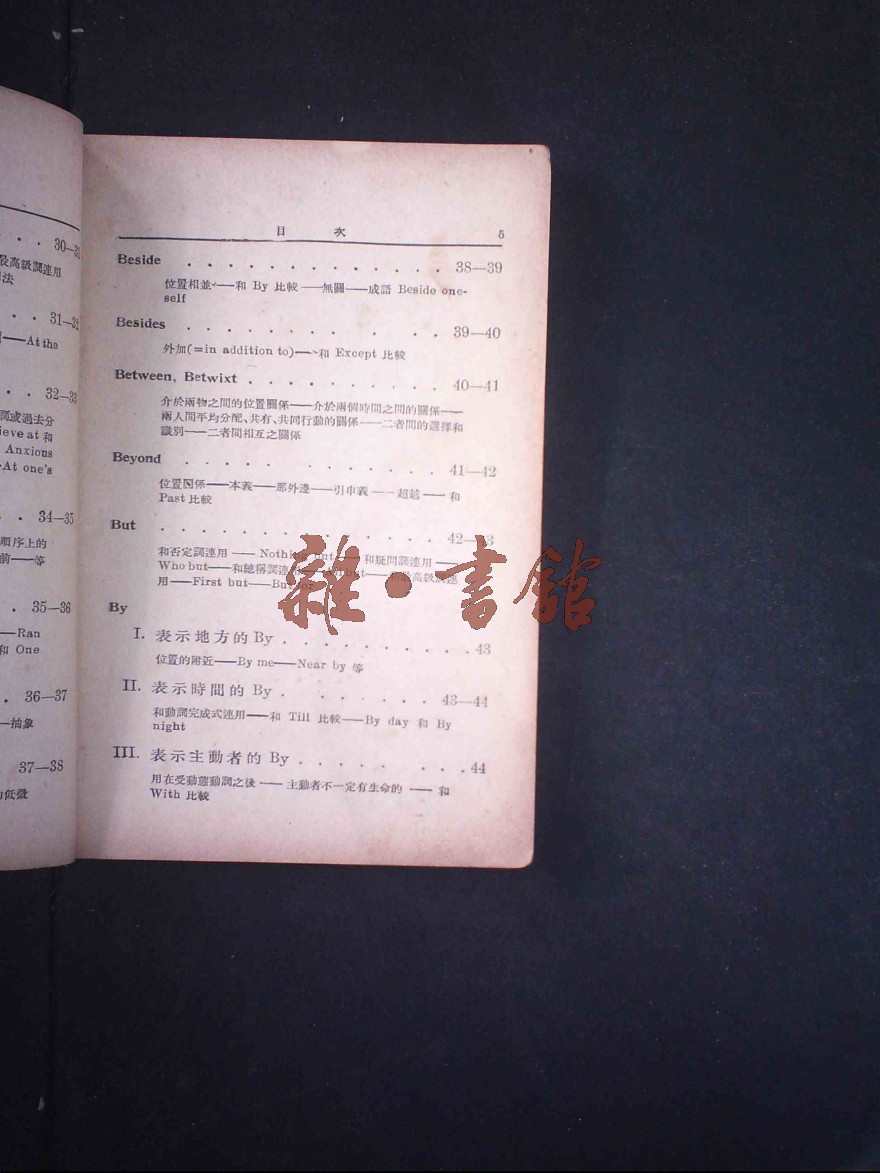 30—31
最高級詞連用
法
31—32
——At the
32—33
詞或過去分
ieve at 和
Anxious
At one's
34—35
順序上的
前——等
35—36
——Ran
和 One
36—37
—抽象
37—38
低微
目 次 5
Beside . . . . . . . . . . . . . 38—39
位置相並——和 By 比較——無關——成語 Beside one-
self
Besides . . . . . . . . . . 39—40
外加(=in addition to)——和 Except 比較
Between, Betwixt . . . . . . . . . . 40—41
介於兩物之間的位置關係——介於兩個時間之間的關係——
兩人間平均分配、共有、共同行動的關係——二者間的選擇和
識別——二者間相互之關係
Beyond . . . . . . . . . . . 41—42
位置関係——本義——那外邊——引申義——超越——和
Past 比較
But . . . . . . . . . . . 42—43
和否定詞連用——Nothing but——和疑問詞連用——
Who but——和總稱詞連用——All but——和最高級詞連
用——First but——But for
By
I. 表示地方的 By . . . . . . . . . 43
位置的附近——By me——Near by 等
II. 表示時間的 By . . . . . . . 43—44
和動詞完成式連用——和 Till 比較——By day 和 By
night
III. 表示主動者的 By . . . . . . . . 44
用在受動態動詞之後——主動者不一定有生命的——和
With 比較
雜·書館